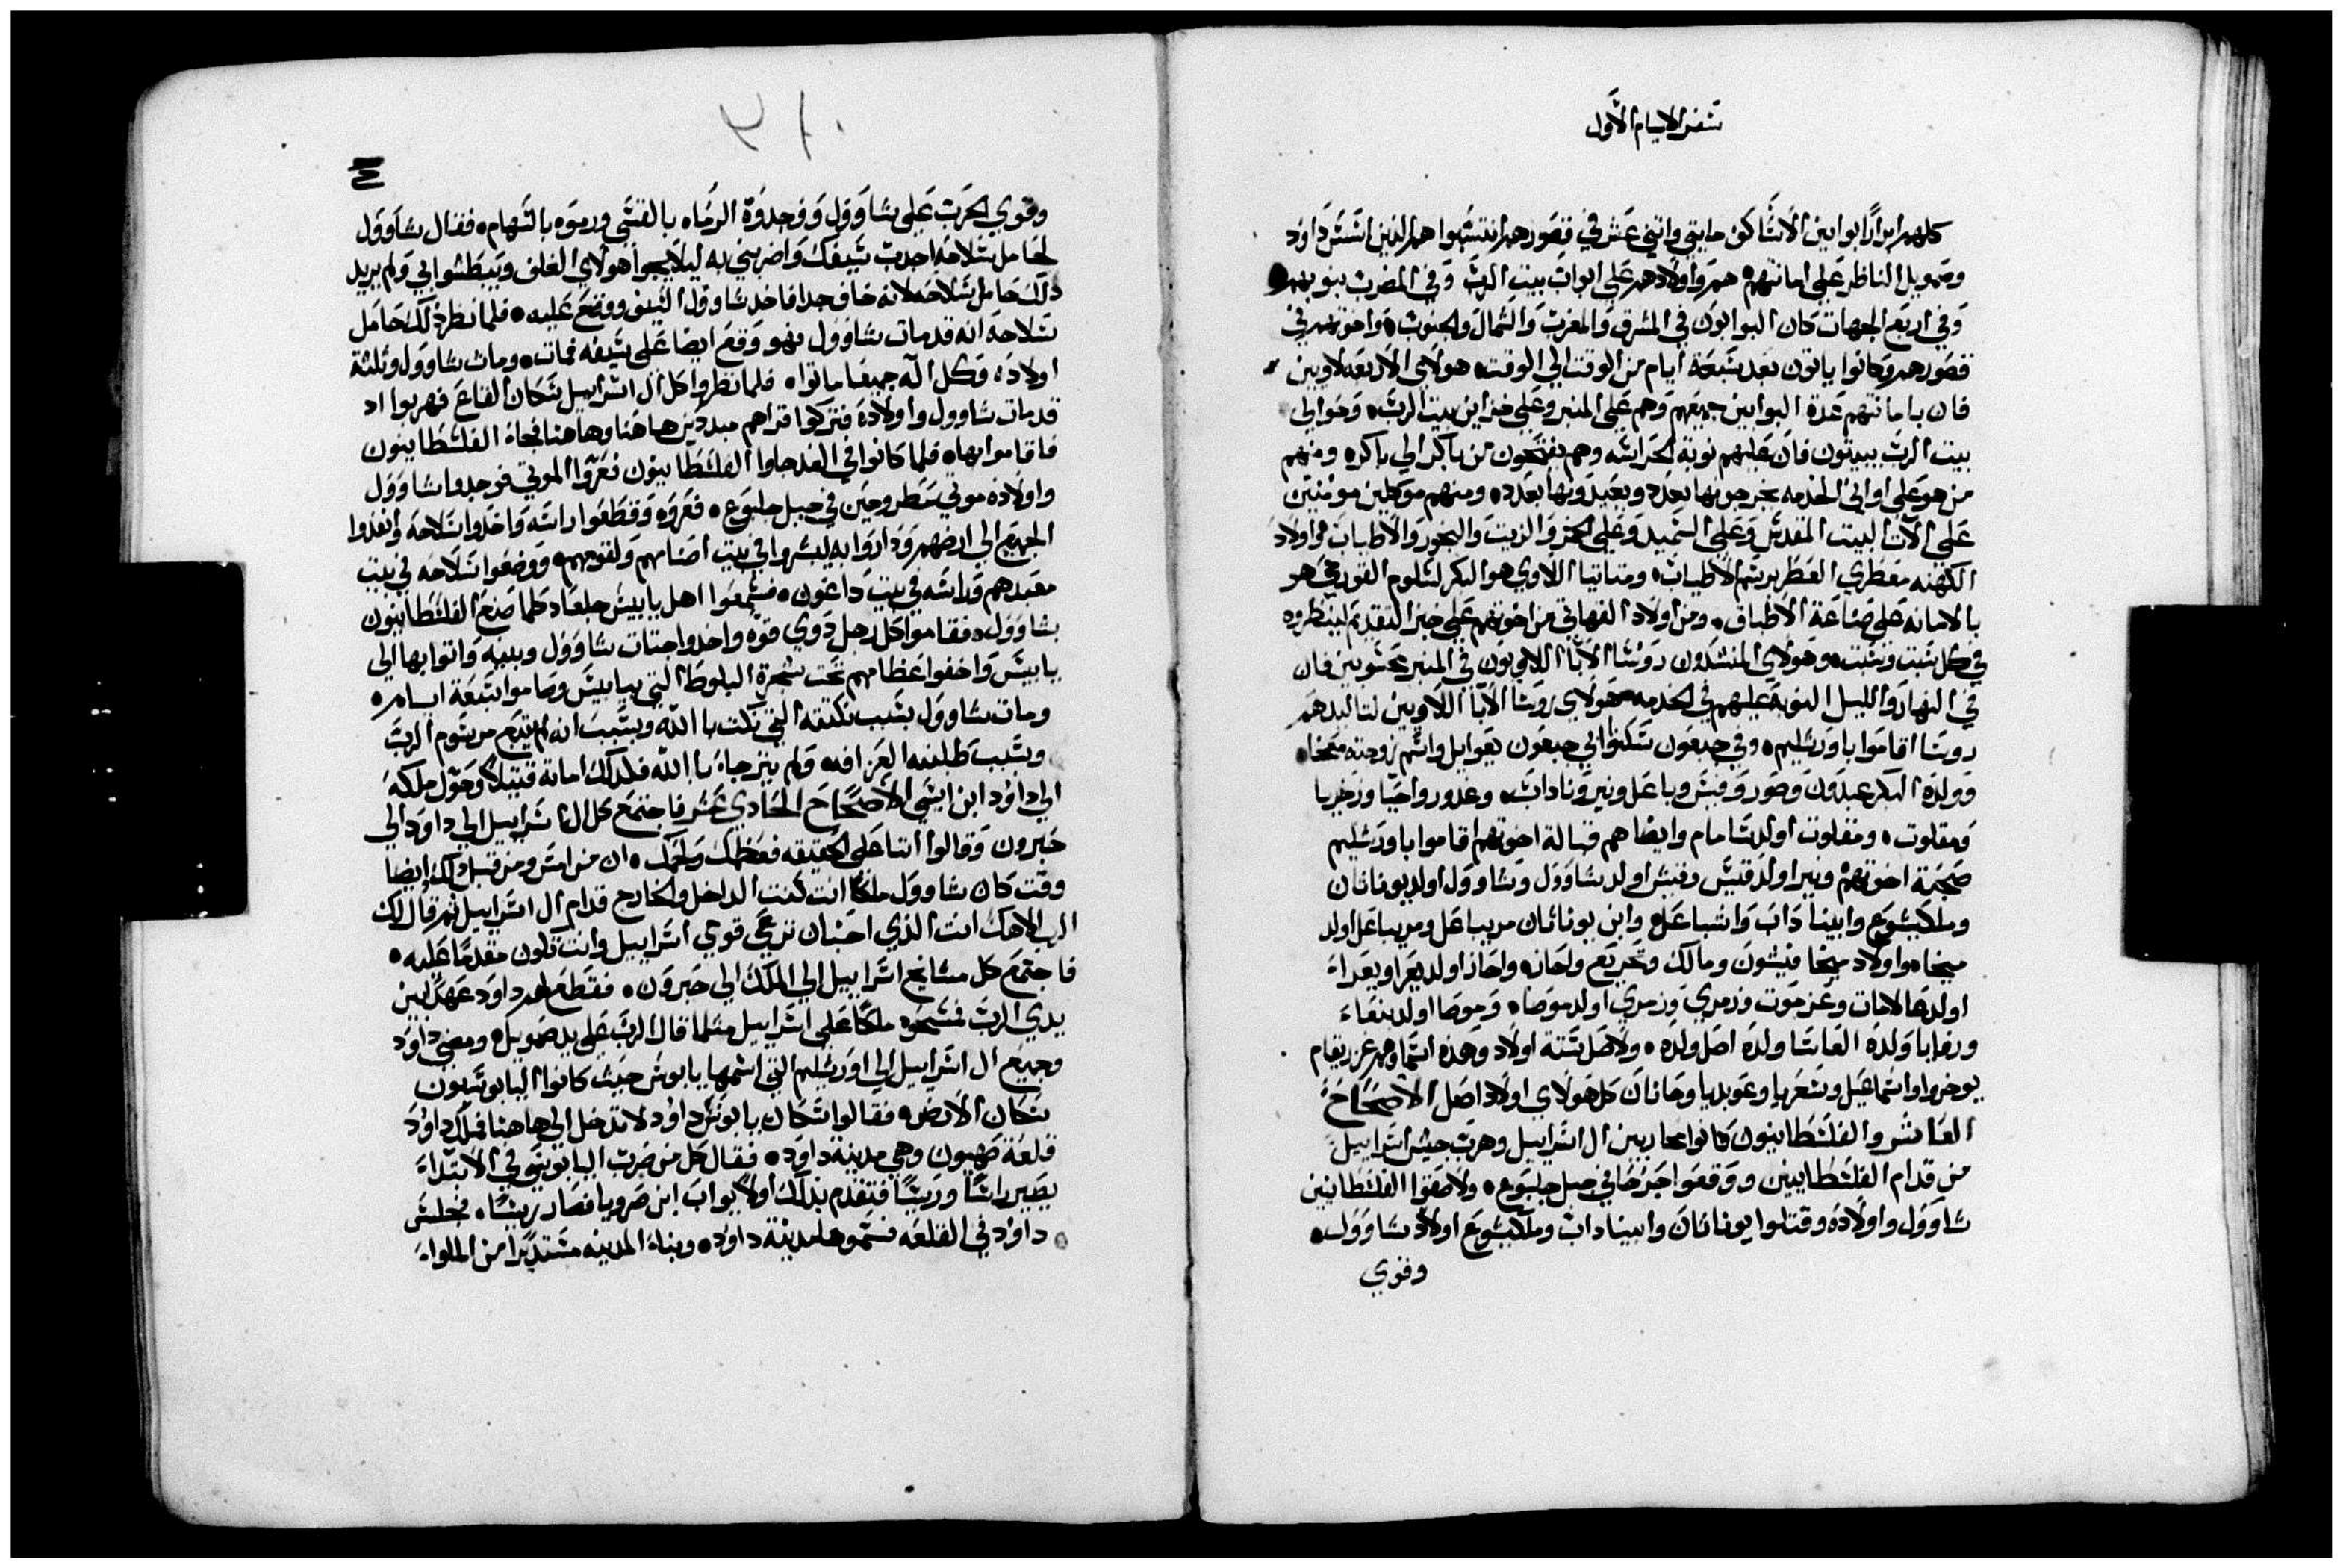 سفر الايام الاول
كلهم ابرارًا بوابين الاساكف مايتي واثني عشر في قصورهم انتسبوا هم الذين اسس داود
وصمويل الناظر على امانتهم همر واولادهم على ابواب بيت الرب وفي المضرب بنوبهم
وفي اربع الجهات كان البوابون في المشرق والمغرب والشمال والجنوب واخوتهم في
قصورهم وكانوا ياتون بعد سبعة ايام من الوقت الي الوقت هولاي الاربعه لاويين
فان بامانتهم عدة البوابين جميعهم وهم على المنبر وعلى خزاين بيت الرب وحوالي
بيت الرب يبيتون فان عليهم نوبة الحراسه وهم يفتحون من باكر الي باكر ومنهم
من هو على اواني الخدمه يخرجونها بعدد ويعيدونها بعدد ومنهم موكلين مومنين
على الات البيت المقدس وعلى السميد وعلى الخمر والزيت والبخور والاطياب واولاد
الكهنه معطري العطر برسم الاطياب ومتاتيا اللاوي هو البكر لسلوم القورحي هو
بالامانه على صناعة الاطباق ومن اولاد القهاتي من اخوتهم على خبز التقديم لينظروه
في كل سبت وسبت وهولاي المنشدون روسا الابا اللاويون في المنبر محسوبين فان
في النهار والليل النوبة عليهم في الخدمه هولاي روسا الابا اللاويين لتاليدهم
روسا اقاموا باورشليم وفي جبعون سكنوا ابي جبعون يعوايل واسم زوجته معخا
وولده البكر عبدون وصور وقيس وباعل ونير وناداب وعدور واحيا وزخريا
ومقلوت ومقلوت اولد سامام وايضا هم قبالة اخوتهم اقاموا باورشليم
صحبة اخوتهم ونير اولد قيس وقيس اولد ساوول وساوول اولد يوناتان
وملكيشوع وابينا داب واشباعل وابن يوناتان مريباعل ومريباعل اولد
ميخا واولاد ميخا فيثون ومالك وتحريع واحاز واحاز اولد يعرا ويعراء
اولدها لامات وعزموت وزمري وزمري اولد موصا وموصا اولد بنعاء
ورفايا ولده العاسا ولده اصل ولده ولاصل ستة اولاد وهذه اسماوهم عزريقام
بوخروا واسماعيل وسعريا وعوبديا وحانان كل هولاي اولاد اصل الاصحاح
العاشر والفلسطانيون كانوا محاربين ال اسراييل وهرب جيش اسراييل
من قدام الفلسطانيين ووقعوا جرحا في جبل جلبوع ولاصقوا الفلسطانيين
ساوول واولاده وقتلوا يوناتان وابينا داب وملكيشوع اولاد ساوول
وقوي
وقوي الحرب على ساوول ووجدوه الرماه بالقسي ورموه بالسهام فقال ساوول
لحامل سلاحه اجدب سيفك واضربني به ليلا يجوا هولاي الغلف ويبطشوا بي ولم يريد
ذلك حامل سلاحه لانه خاف جدا فاخد ساوول السيف ووقع عليه فلما نظر ذلك حامل
سلاحه انه قد مات ساوول فهو وقع ايضا على سيفه فمات ومات ساوول وثلثة
اولاده وكل اله جميعا ماتوا فلما نظروا كل ال اسراييل سكان القاع فهربوا اد
قد مات ساوول واولاده فتركوا قراهم مبددين هاهنا وهاهنا فجاء الفلسطانيون
فاقاموا بها فلما كانوا في الغد جاوا الفلسطانيون فعروا الموتي فوجدوا ساوول
واولاده موتي مطروحين في جبل جلبوع فعروه وقطعوا راسه واخدوا سلاحه وانفدوا
الجميع الي ارضهم وداروا به ليبشروا في بيت اصنامهم ولقومهم ووضعوا سلاحه في بيت
معبدهم وراسه في بيت داغون فسمعوا اهل يابيس جلعاد كلما صنع الفلسطانيون
بساوول فقاموا كل رجل دوي قوه واخدوا جتات ساوول وبنيه واتوا بها الي
يابيس واخفوا عظامهم تحت شجرة البلوط التي بيابيس وصاموا سبعة ايام
ومات ساوول بسبب نكتته التي نكت بالله وبسبب انه لم يتبع مرسوم الرب
وبسبب طلبته العرافه ولم يترجاه بالله فلدلك اماته قتيلا وحول ملكه
الي داود ابن ايسي الاصحاح الحادي عشر فاجتمع كل ال اسراييل الي داود الي
حبرون وقالوا اننا على الحقيقه فعظمك ولحمك ان من امس ومن قبل ذلك ايضا
وقت كان ساوول ملكا انت كنت الداخل والخارج قدام ال اسراييل ثم قال لك
الرب الاهك انت الذي اخبان ترعي قومي اسراييل وانت تكون مقدما عليه
فاجتمع كل مشايخ اسراييل الي الملك الي حبرون فقطع لهم داود عهدًا بين
يدي الرب فمسحوه ملكا على اسراييل مثلما قال الرب على يد صمويل ومضي داود
وجميع ال اسراييل الي اورشليم التي اسمها يابوس حيث كانوا اليابوسيون
سكان الارض فقالوا سكان يابوس لداود لا تدخل الي هاهنا فملك داود
قلعة صهيون وهي مدينة داود فقال كل من ضرب اليابوسي في الابتداء
يصير راسًا وريسًا فتقدم بدلك اولا يواب ابن صرويا فصار ريسًا فجلس
داود في القلعه فسموها مدينة داود وبناء المدينه مستديرا من الملواء